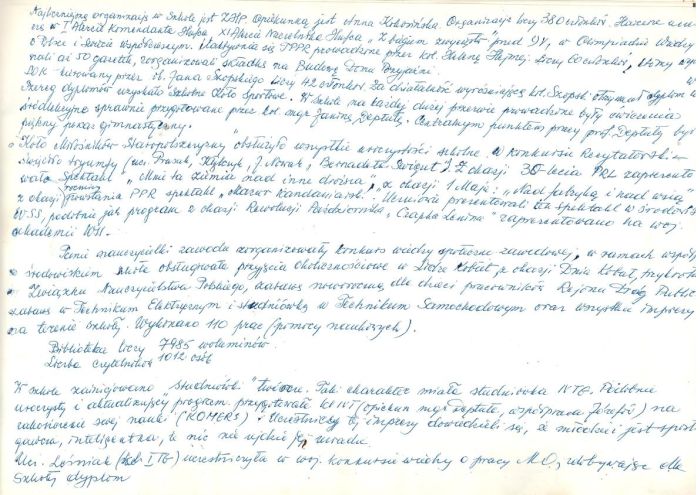 Najliczniejszą organizacją w Szkole jest ZHP. Opiekunką jest Anna Kokosińska. Organizacja liczy 380 członków. Harcerze
w I Alercie Komendanta Hufca XI Alercie Naczelnika Hufca "Z bijącym zwycięstw" pred IV, w Olimpiadzie Wiedzy
o Polsce i świecie współczesnym. Uaktywnia się TPPR prowadzone przez kol. Helenę Hejmej liczy 60 członków,
50 gazetek, zorganizowali składkę na Budowę Domu Przyjaźni
SOK - kierowany przez ob. Jana Skopskiego liczy 42 członków. Za działalność wyróżniającą kol. Skopski otrzymał dyplom
Szereg dyplomów uzyskało Szkolne Koło Sportowe. W szkole na każdej dużej przerwie prowadzone były ćwiczenia
śródlekcyjne sprawnie przygotowane przez kol. mgr Janinę Deptułę. Centralnym punktem pracy prof. Deptuły był
piękny pokaz gimnastyczny.
Koło Miłośników Staropolszczyzny obsłużyło wszystkie uroczystości szkolne. W konkursie Recytatorskim
święciło tryumfy (ucz. Prasak, J. Nowak, Bernadeta Świgut). Z okazji 30-lecia PRL zaprezento
wało Spektakl "Mnie ta ziemia nad inne droższa", z okazji 1 Maja: "Nad fabryką i nad wsią
z okazji rocznicy powstania PPR spektakl "Mazur Kandaniarski". Uczniowie prezentowali ten spektakl w środow.
WSS, podobnie jak program z okazji Rewolucji Październikowej "Czapka Lenina" zaprezentowano na woj.
akademii WSS.
Panie nauczycielki zawodu zorganizowały konkurs wiedzy społeczno zawodowej, w ramach współpr.
środowiskiem szkoła obsługiwała przyjęcia okolicznościowe w Lidze Kobiet z okazji Dnia Kobiet,
Związku Nauczycielstwa Polskiego, zabawę noworoczną dla dzieci pracowników Rejonu Dróg Public
zabawę w Technikum Elektrycznym i studniówkę w Technikum Samochodowym oraz wszystkie imprezy
na terenie szkoły. Wykonano 110 prac (pomocy naukowych).
Biblioteka liczy 7985 woluminów.
Liczba czytelników 1012 osób
W szkole zainicjowano "studniówki" twórcze. Taki charakter miała studniówka IV TG. Podobnie
uroczysty i aktualizujący program przygotowała kl. IVT (opiekun mgr Deptuła, współpraca Józefów) na
zakończenie swej nauki (KOMERS). Uczestniczący tej imprezy dowiedzieli się, że młodzież jest sport
gawcza, inteligentna, że nic nie ujdzie jej uwadze.
Ucz. Leśniak (kl. I TG) uczestniczyła w woj. konkursie wiedzy o pracy MO, zdobywając dla
Szkoły dyplom